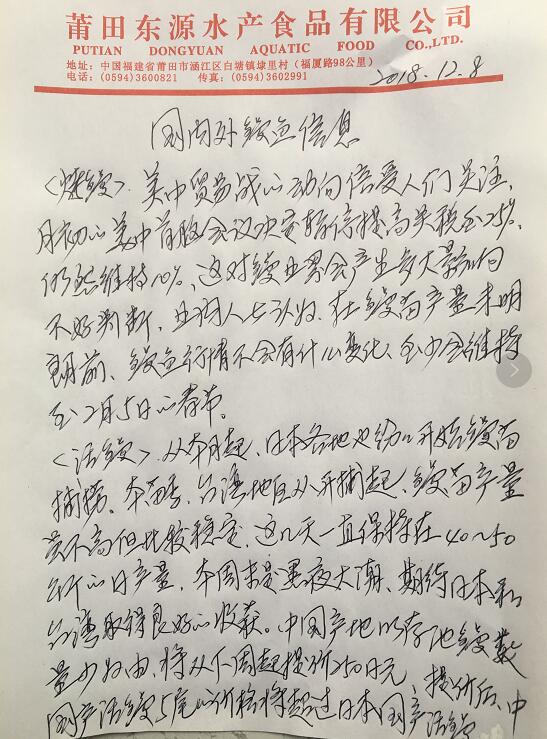 莆田东源水产食品有限公司
PUTIAN DONGYUAN AQUATIC FOOD CO.,LTD.
地址：中国福建省莆田市涵江区白塘镇埭里村（福厦路98公里）
电话：(0594)3600821 传真：(0594)3602991
2018.12.8
国内外鳗鱼信息
<烤鳗>. 美中贸易战的动向倍受人们关注,
月初的美中首脑会议决定暂停提高关税至25%,
仍然维持10%, 这对鳗业界会产生多大影响
不好判断, 业内人士认为、在鳗苗产量未明
朗前、鳗鱼行情不会有什么变化、至少会维持
至2月5日的春节。
<活鳗>. 从本月起、日本各地也纷纷开始鳗苗
捕捞. 本苗季、台湾地区从开捕起、鳗苗产量
虽不高但比较稳定、这几天一直保持在40~50
公斤的日产量, 本周末是黑夜大潮、期待日本和
台湾取得良好的收获。中国产地以存池鳗数
量少为由, 将从下周起提价250日元, 提价后、中
国产活鳗5尾的价格将超过日本国产活鳗